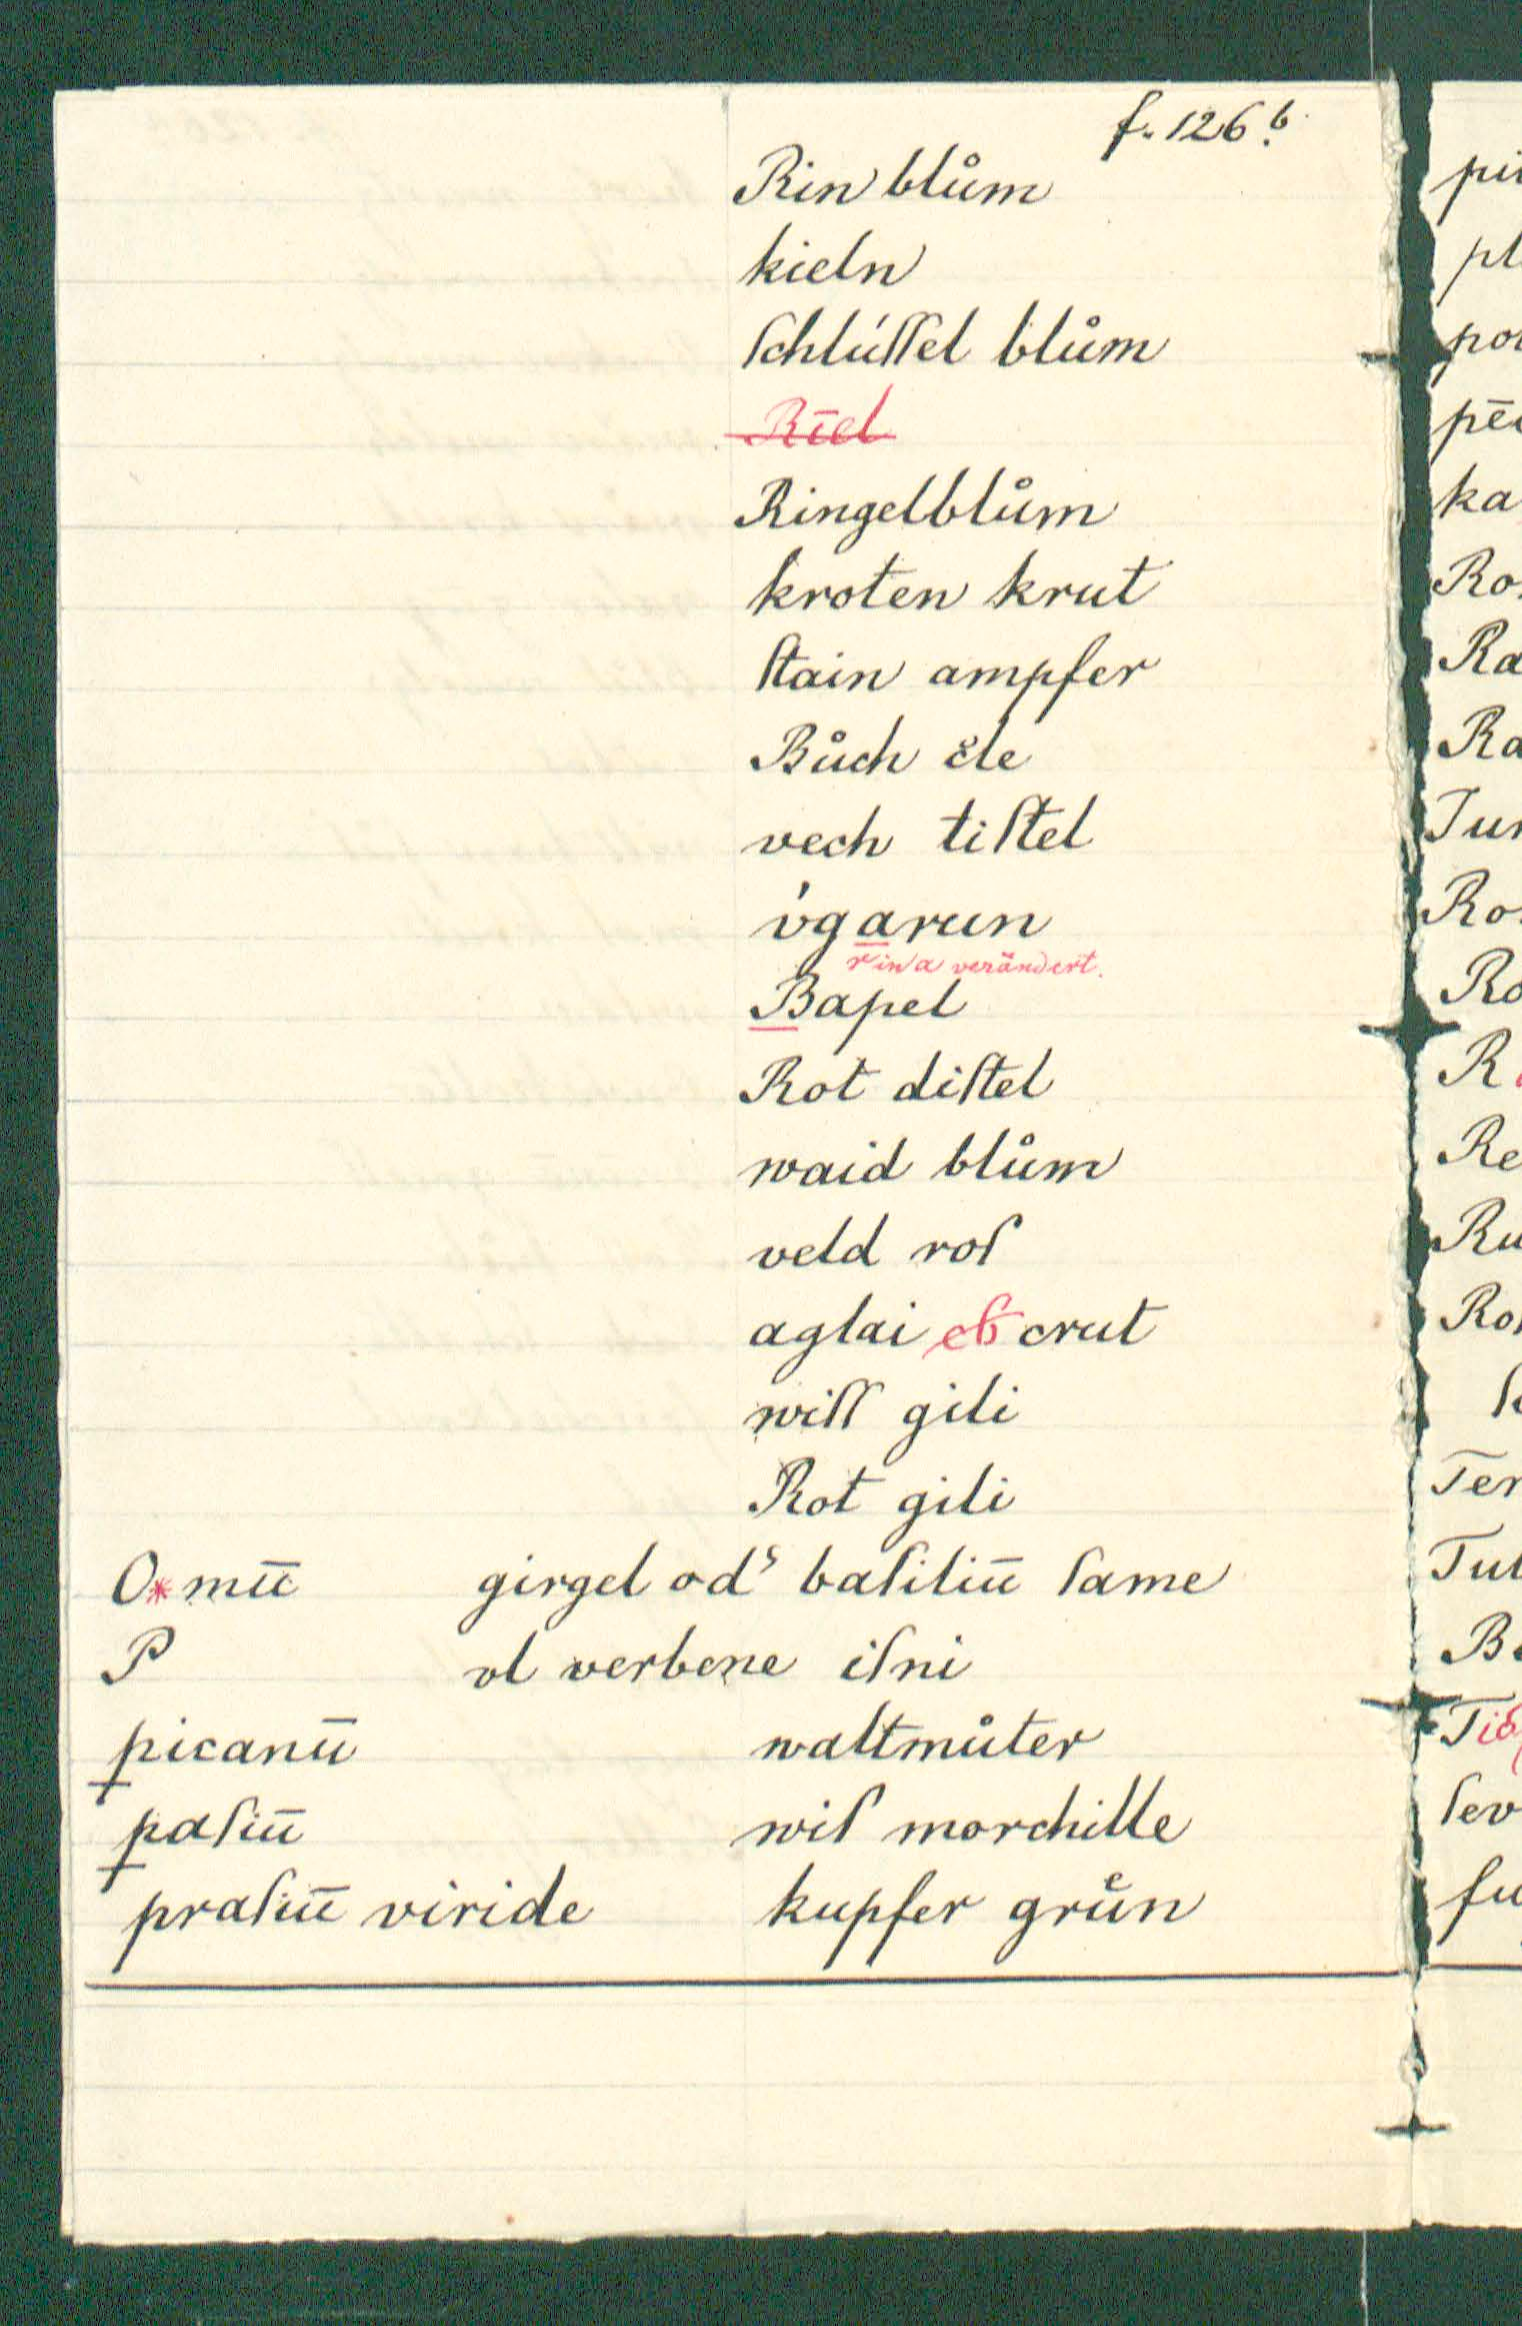 f. 126 b.
Rin blům
kieln
ſchlúſſel blům
R̶īe̶l̶
Ringelblům
kroten krut
ſtain ampfer
Bůch
vech tiſtel
v́garun
r in a verändert.
Bapel
Rot diſtel
waid blům
veld roſ
aglai crut
wiſſ gili
Rot gili
O*mū girgel od͛ baſiliū ſame
P ol verbene iſni
picanū waltmůter
paſiū wiſ morchille
praſiū viride kupfer gruͤn